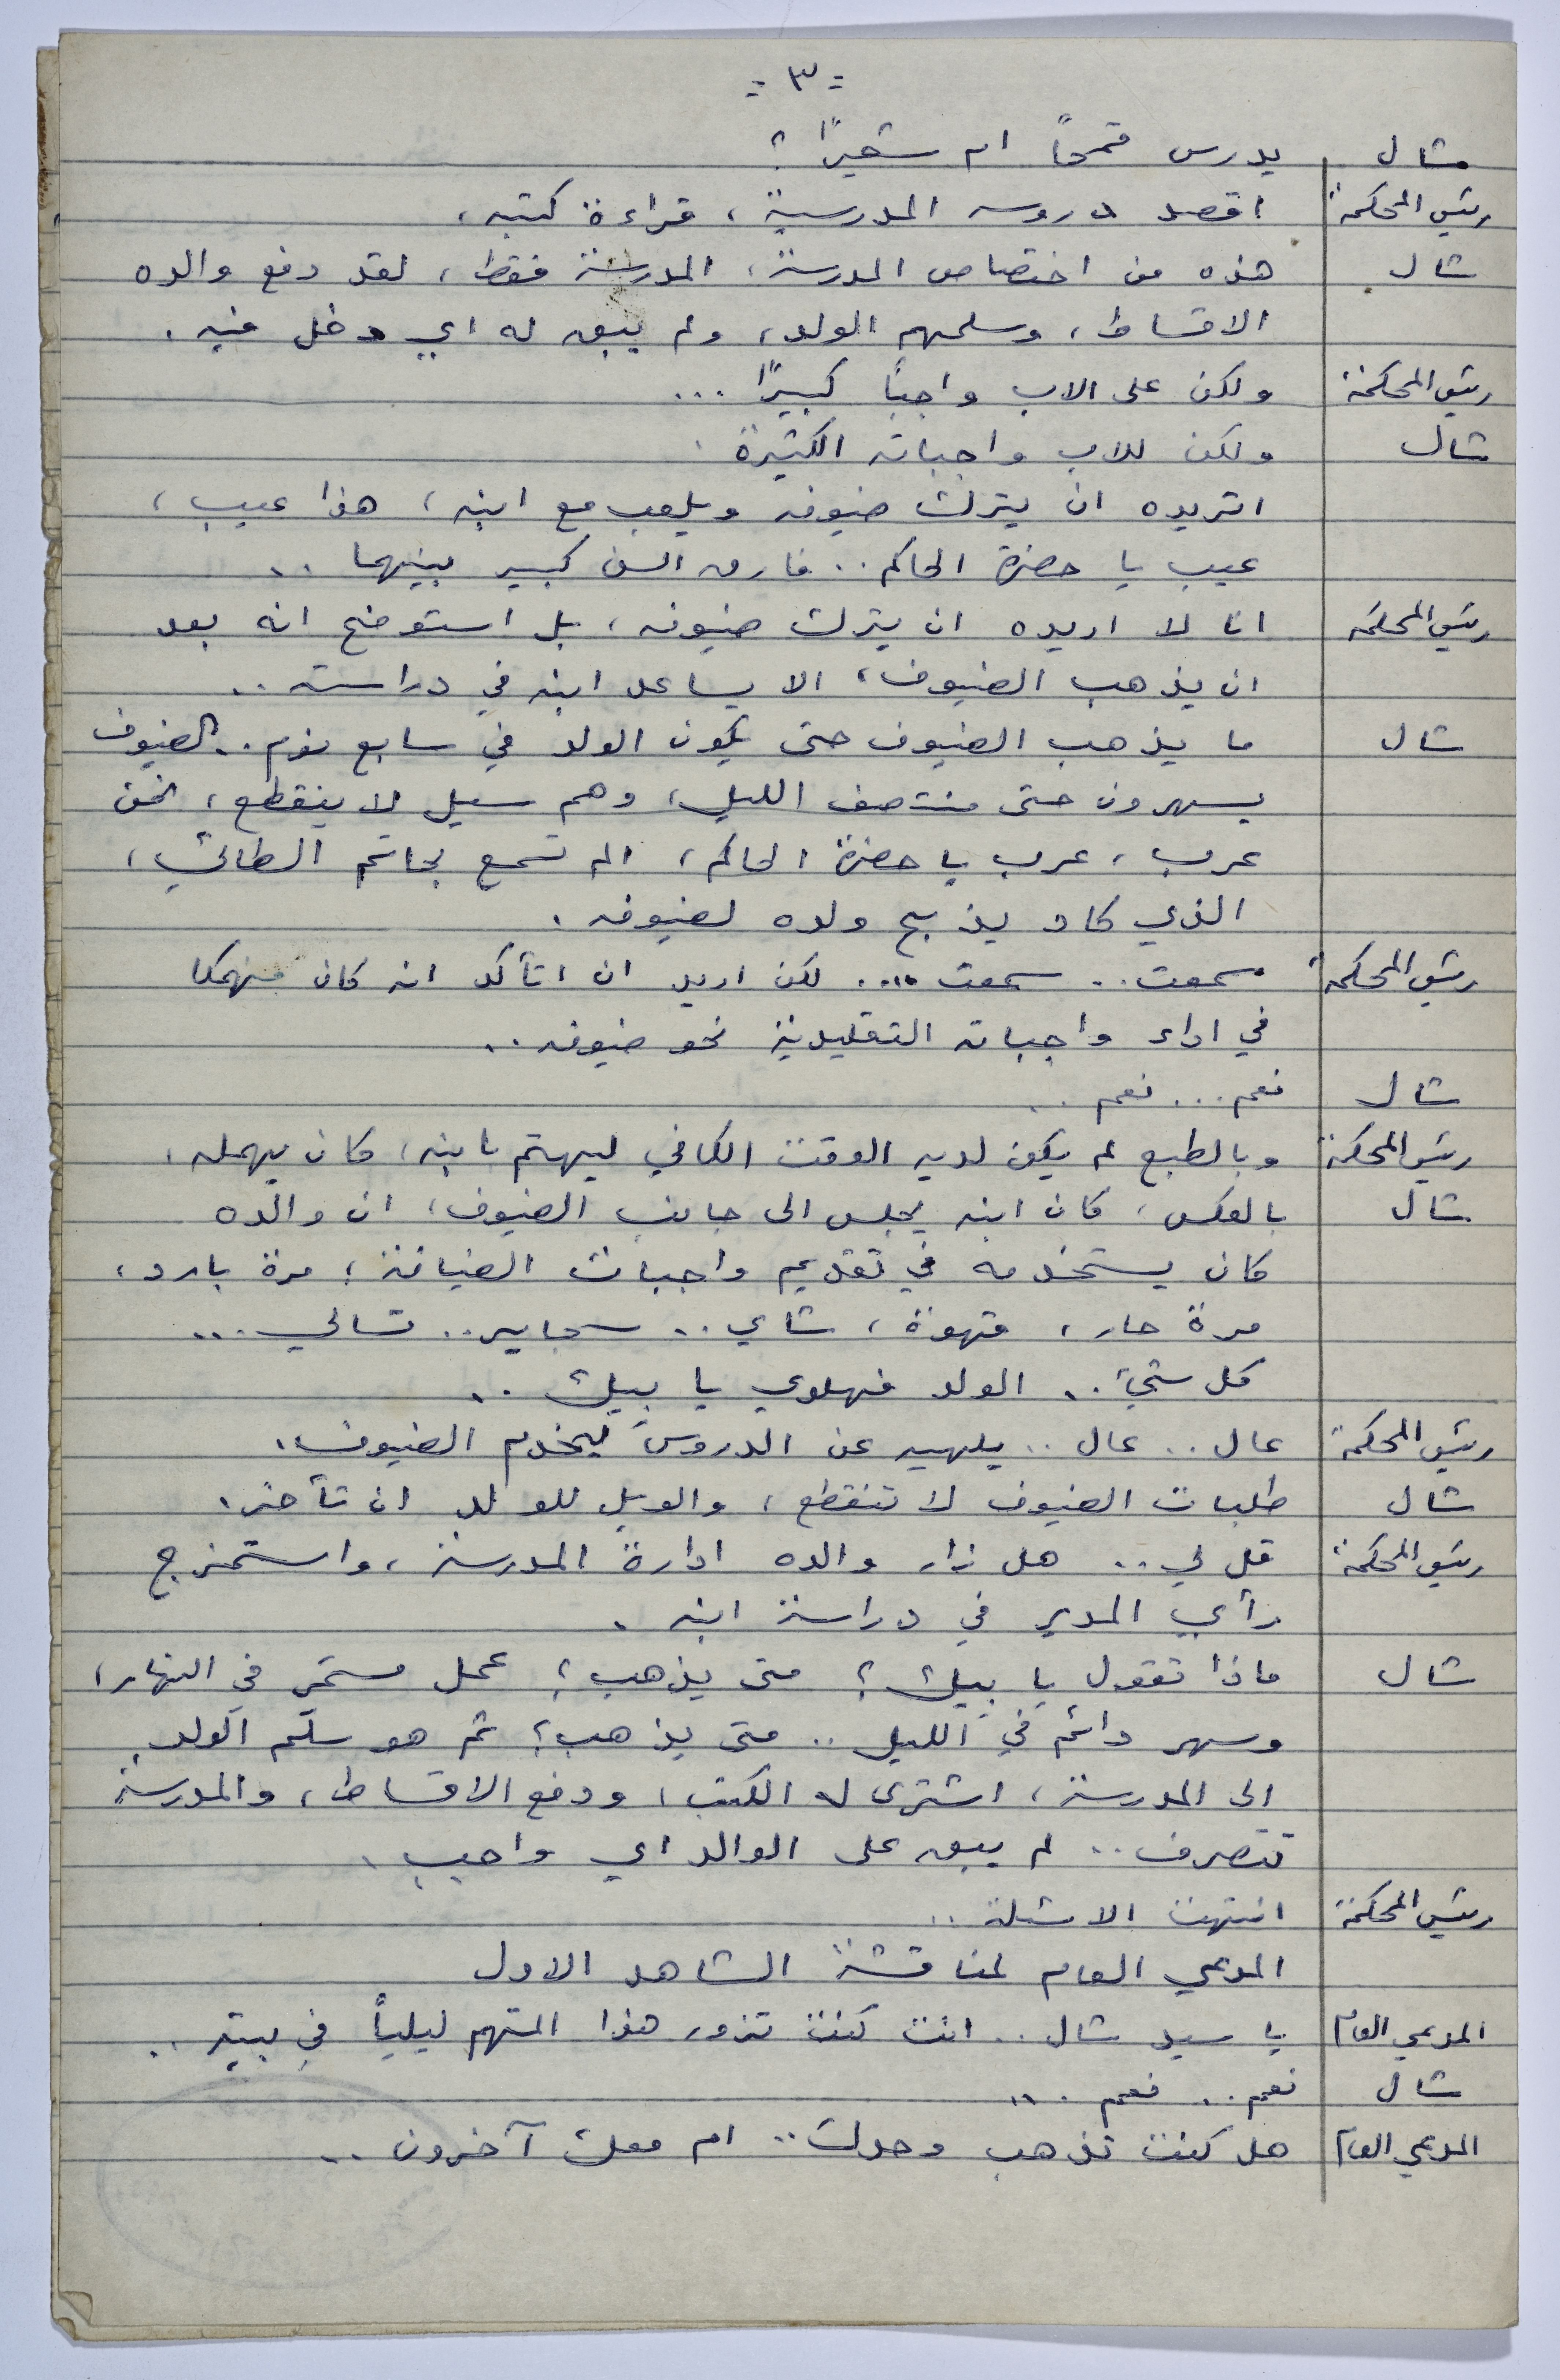 - ٣ -
شال يدرس قمحاً ام شعيرًا ؟
رئيس المحكمة اقصد دروسه المدرسية ، قراءة كتبه ،
شال هذه من اختصاص المدرسة ، المدرسة فقط ، لقد دفع والده
الاقساط ، وسلمهم الولد ، ولم يبق له اي دخل فيه .
رئيس المحكمة ولكن على الاب واجباً كبيرًا ...
شال ولكن للاب واجباته الكثيرة .
اتريده ان يترك ضيوفه ويلعب مع ابنه ، هذا عيب ،
عيب يا حضرة الحاكم .. فارق السن كبير بينهما ..
رئيس المحكمة انا لا اريده ان يترك ضيوفه ، بل استوضح انه بعد
ان يذهب الضيوف ، الا يساعد ابنه في دراسته ..
شال ما يذهب الضيوف حتى يكون الولد في سابع نوم .. الضيوف
يسهرون حتى منتصف الليل ، وهم سيل لا ينقطع ، نحن
عرب ، عرب يا حضرة الحاكم ، الم تسمع بحاتم الطائي ،
الذي كاد يذبح ولده لضيوفه .
رئيس المحكمة سمعت .. سمعت .... لكن اريد ان اتأكد انه كان منهمكا
في اداء واجباته التقليدية نحو ضيوفه ..
شال نعم ... نعم ..
رئيس المحكمة وبالطبع لم يكن لديه الوقت الكافي ليهتم بابنه ، كان يهمله .
شال بالعكس ، كان ابنه يجلس الى جانب الضيوف ، ان والده
كان يستخدمه في تقديم واجبات الضيافة ، مرة بارد ،
مرة حار ، قهوة ، شاي .. سجاير .. تسالي ...
كل شيء .. الولد فهلوي يا بيك ..
رئيس المحكمة عال .. عال .. يلهيه عن الدروس ليخدم الضيوف .
شال طلبات الضيوف لا تنقطع ، والويل للولد ان تأخر .
رئيس المحكمة قل لي .. هل زار والده ادارة المدرسة ، واستمزج
رأي المدير في دراسة ابنه .
شال ماذا تقول يا بيك ؟ متى يذهب ؟ عمل مستمر في النهار ،
وسهر دائم في الليل .. متى يذهب ؟ ثم هو سلّم الولد
الى المدرسة ، اشترى له الكتب ، ودفع الاقساط ، والمدرسة
تتصرف .. لم يبق على الوالد اي واجب .
رئيس المحكمة انتهت الاسئلة ..
المدعي العام لمناقشة الشاهد الاول
المدعي العام يا سيد شال .. انت كنت تزور هذا المتهم ليلياً في بيته ..
شال نعم .. نعم ...
المدعي العام هل كنت تذهب وحدك .. ام معك آخرون ..